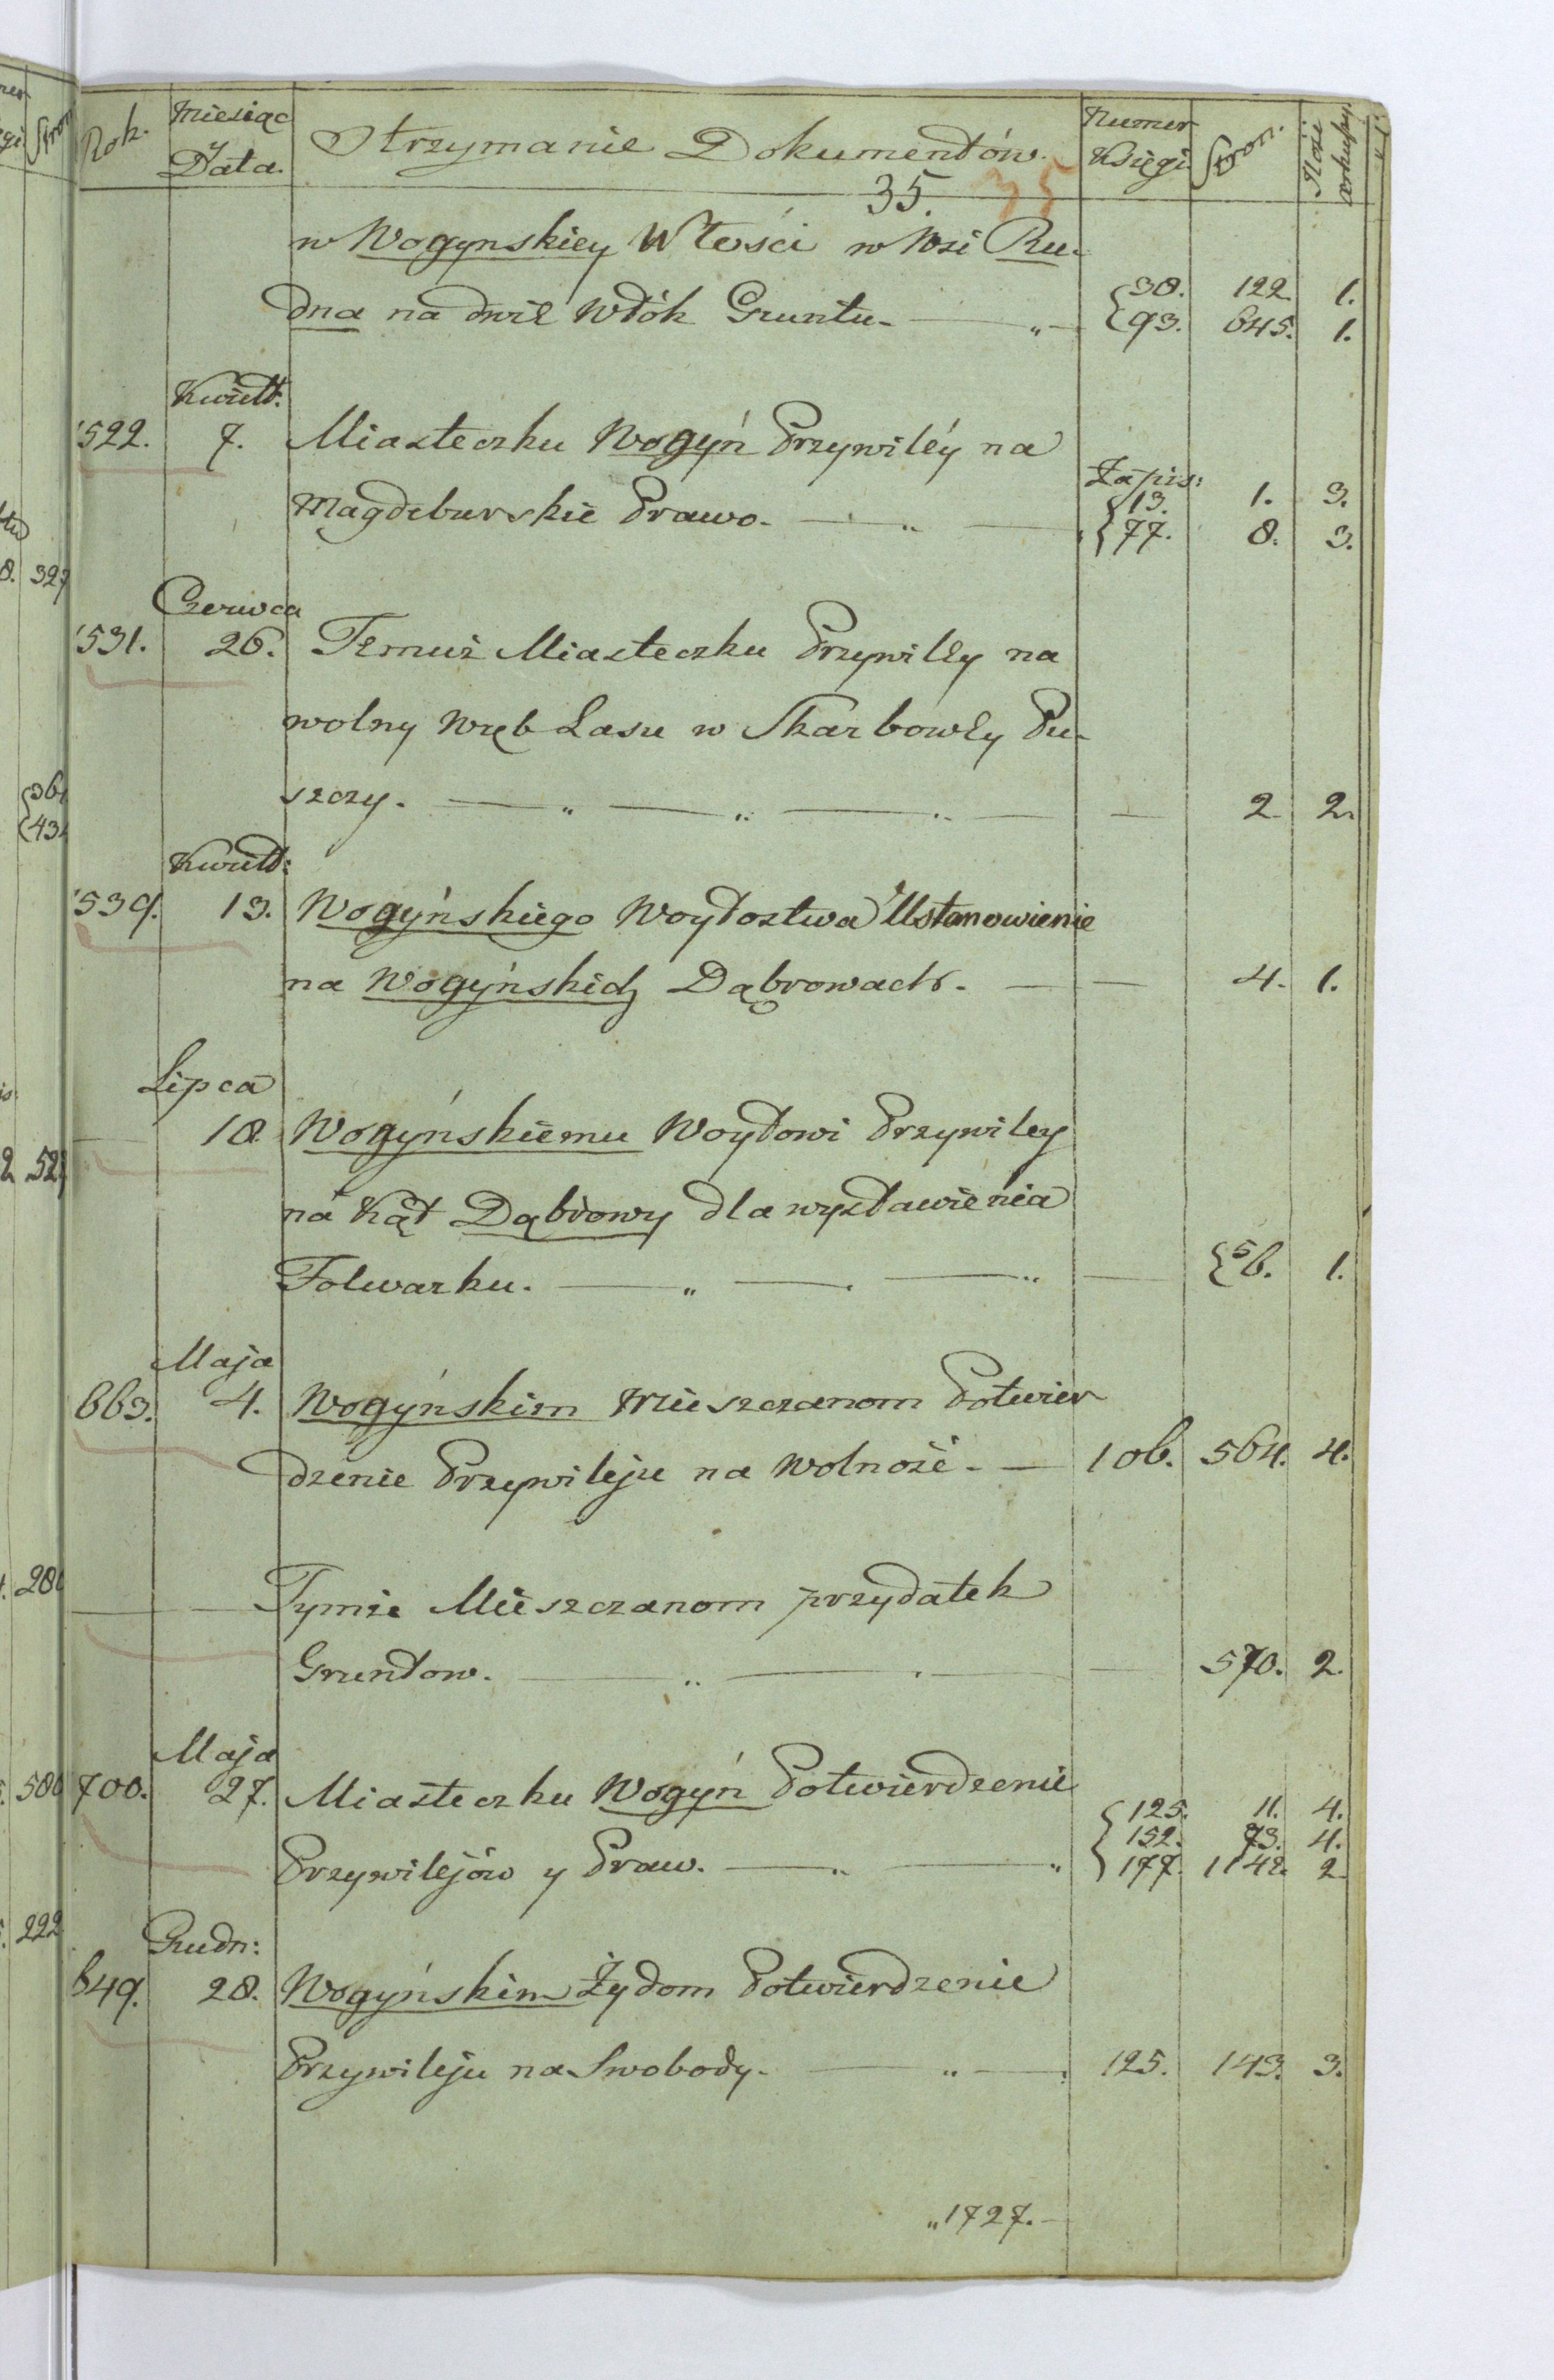 Rok. Miesiąc y Data. Otrzymanie Dokumentów. Numer Księgi Stron. Ilość arkuszy.
35. 35
w Wogynskiey Włości w Wsi Ru-
dna na dwie Włók Gruntu. 38. 122. 1.
93. 645. 1.
Kwiet:
1522. 7. Miasteczku Wogyń Przywiléy na
Zapis:
Magdeburskie Prawo. 13. 1. 3.
77. 8. 3.
Czerwca
1531. 26. Temuż Miasteczku Przywiley na
wolny Wręb Lasu w Skarbowey Pu-
szczy. 2. 2.
Kwiet:
1539. 13. Wogyńskiego Woytostwa Ustanowienie
na Wogyńskich Dąbrowach. 4. 1.
Lipca
18 Wogyńskiemu Woytowi Przywiley
na Kąt Dąbrowy dla wystawienia
Folwarku. 5 6. 1.
Maja
663. 4. Wogyńskim Mieszczanom Potwier
dzenie Przywileju na Wolność. 106. 564. 4.
Tymże Mieszczanom przydatek
Gruntow. 570. 2.
Maja
700. 27. Miasteczku Wogyń Potwierdzenie
125. 11. 4.
152. 73. 4.
Przywilejów y Praw. 177. 1142. 2.
Grudn:
649. 28. Wogyńskim Żydom Potwierdzenie
Przywileju na Swobody. 125. 143. 3.
1727.